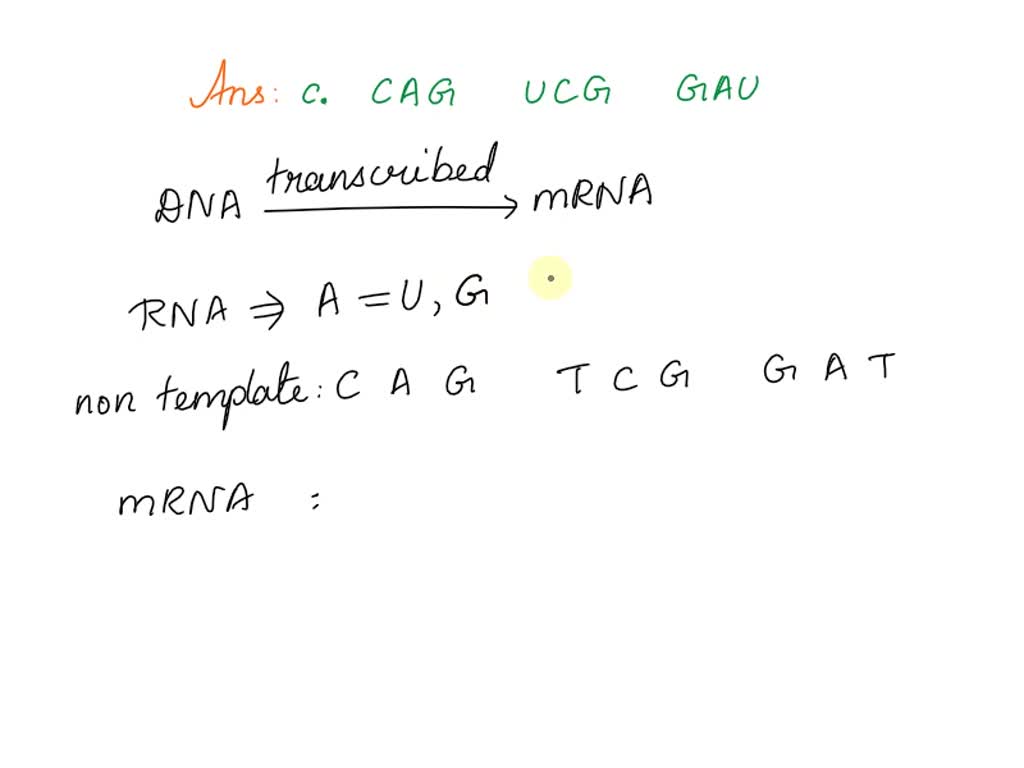 Ans: c. CAG UCG GAU
transcribed
DNA → mRNA
RNA ⇒ A = U, G
non template: C A G T C G G A T
mRNA :